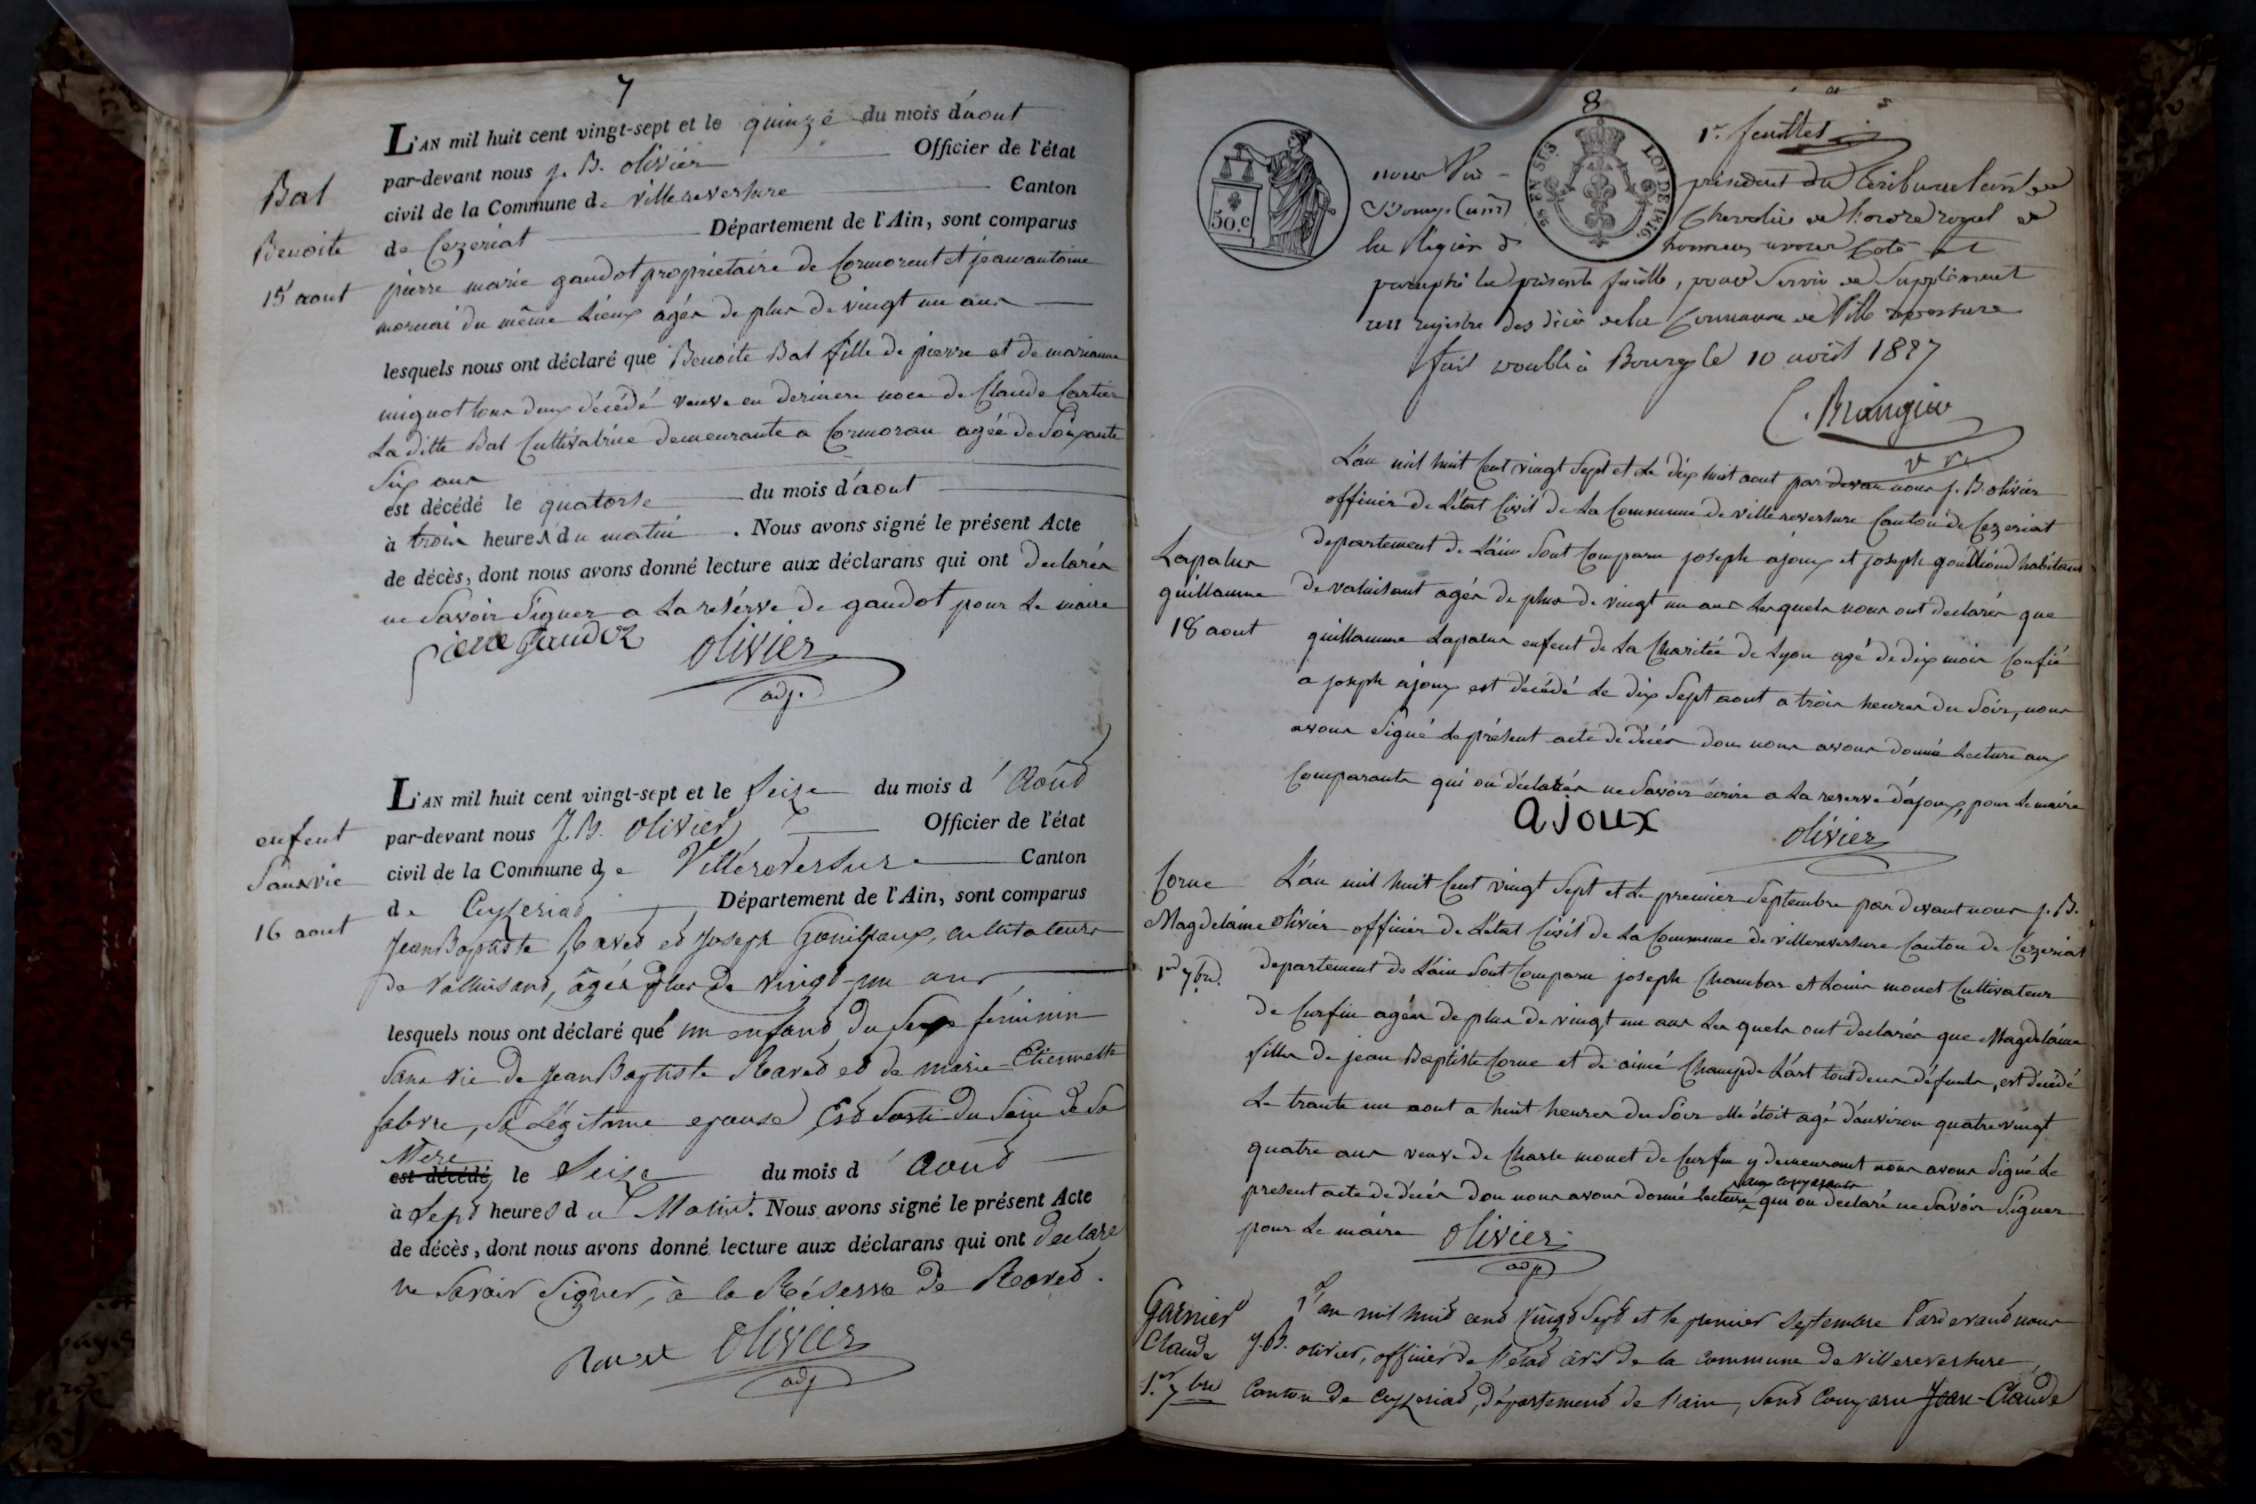 7
L'AN mil huit cent vingt-sept et le quinze du mois d'aout
par-devant nous j. B. olivier Officier de l'état
civil de la Commune de villereversure Canton
de Cezeriat Département de l'Ain, sont comparus
pierre marie gaudot propriétaire de Cormorent et jean antoine
mornai du même Lieux agés de plus de vingt un ans
lesquels nous ont déclaré que Benoite Bal fille de pierre et de marianne
mignot tous deux décédé veuve en derniere noce de Claude Cartier
La ditte Bal Cultivatrice demeurante a Cormoran agée de Soixante
Six ans
est décédé le quatorse du mois d'aout
à trois heures du matin. Nous avons signé le présent Acte
de décès, dont nous avons donné lecture aux déclarans qui ont declarés
ne Savoir Signer a La reserve de gaudot pour Le maire
olivier
adj.
Bal
Benoite
15 aout
L'AN mil huit cent vingt-sept et le Seize du mois d'Août
par-devant nous J. B. olivier Officier de l'état
civil de la Commune de Villereversure Canton
de Ceyzeriat Département de l'Ain, sont comparus
Jean Baptiste Ravet et Joseph cultivateurs
de Valuisant, âgés plus de vingt-un ans
lesquels nous ont déclaré que un enfant du Sexe féminin
Sans vie de Jean Baptiste Ravet et de marie-Etiennette
fabvre, Sa Légitime epouse Est Sorti du Sein de Sa
Mere
est décédé le Seize du mois d'Août
à Sept heures du Matin. Nous avons signé le présent Acte
de décès, dont nous avons donné lecture aux déclarans qui ont declaré
ne Savoir Signer, à la Réserve de Ravet.
Ravet olivier
adj
enfent
Sans vie
16 aout
8
1er feuillet
30.c
EN SUS
LOI DE 1816.
nous président du tribunal civil de
Bourg (ain) Chevalier de l'ordre royal de
la Légion d' honneur avons Coté et
paraphé la présente feuille, pour Servir de Supplément
au registre des décès de la Commune de Ville reversure
fait double à Bourg le 10 août 1827
Lapalus
guillaume
18 aout
L'an mil huit Cent vingt Sept et Le dix huit aout par devan nous j. B. olivier
officier de L'état Civil de La Commune de villereversure Canton de Cezeriat
departement de L'ain Sont Comparu joseph ajoux et joseph habitans
de valuisant agés de plus de vingt un ans Lesquels nous ont declarés que
guillaume Lapalus enfent de La Charitée de Lyon agé de dix mois Confié
a joseph ajoux est décédé Le dix Sept aout a trois heures du Soir, nous
avons Signé Le présent acte de décés don nous avons donné Lecture aux
Comparants qui on déclarés ne Savoir écrire a La reserve d'ajoux, pour Le maire
ajoux
olivier
Corne
Magdelaine
1er 7bre
L'an mil huit Cent vingt Sept et Le premier Septembre par devant nous j. B.
olivier officier de L'état Civil de La Commune de villereversure Canton de Cezeriat
departement de L'ain Sont Comparu joseph Chambar et Louis monet Cultivateur
de Curfin agés de plus de vingt un ans Les quels ont declarés que Magdelaine
fille de jean Baptiste Corne et de aimé Champde L'art tout deux défunts, est décédé
Le trante un aout a huit heures du Soir elle étoit agé d'anviron quatre vingt
quatre ans veuve de Charle monet de Curfin y demeurant nous avons Signé Le
present acte de décés don nous avons donné Lecture aux comparants qui on déclaré ne Savoir Signer
pour Le maire olivier
adj
Garnier
Claude
1.er 7bre
l'an mil huit cent vingt Sept et le premier Septembre Pardevant nous
J.B. olivier, officier de l'état civil de la commune de Villereversure
Canton de Ceyzeriat, département de l'ain, Sont Comparu Jean-Claude